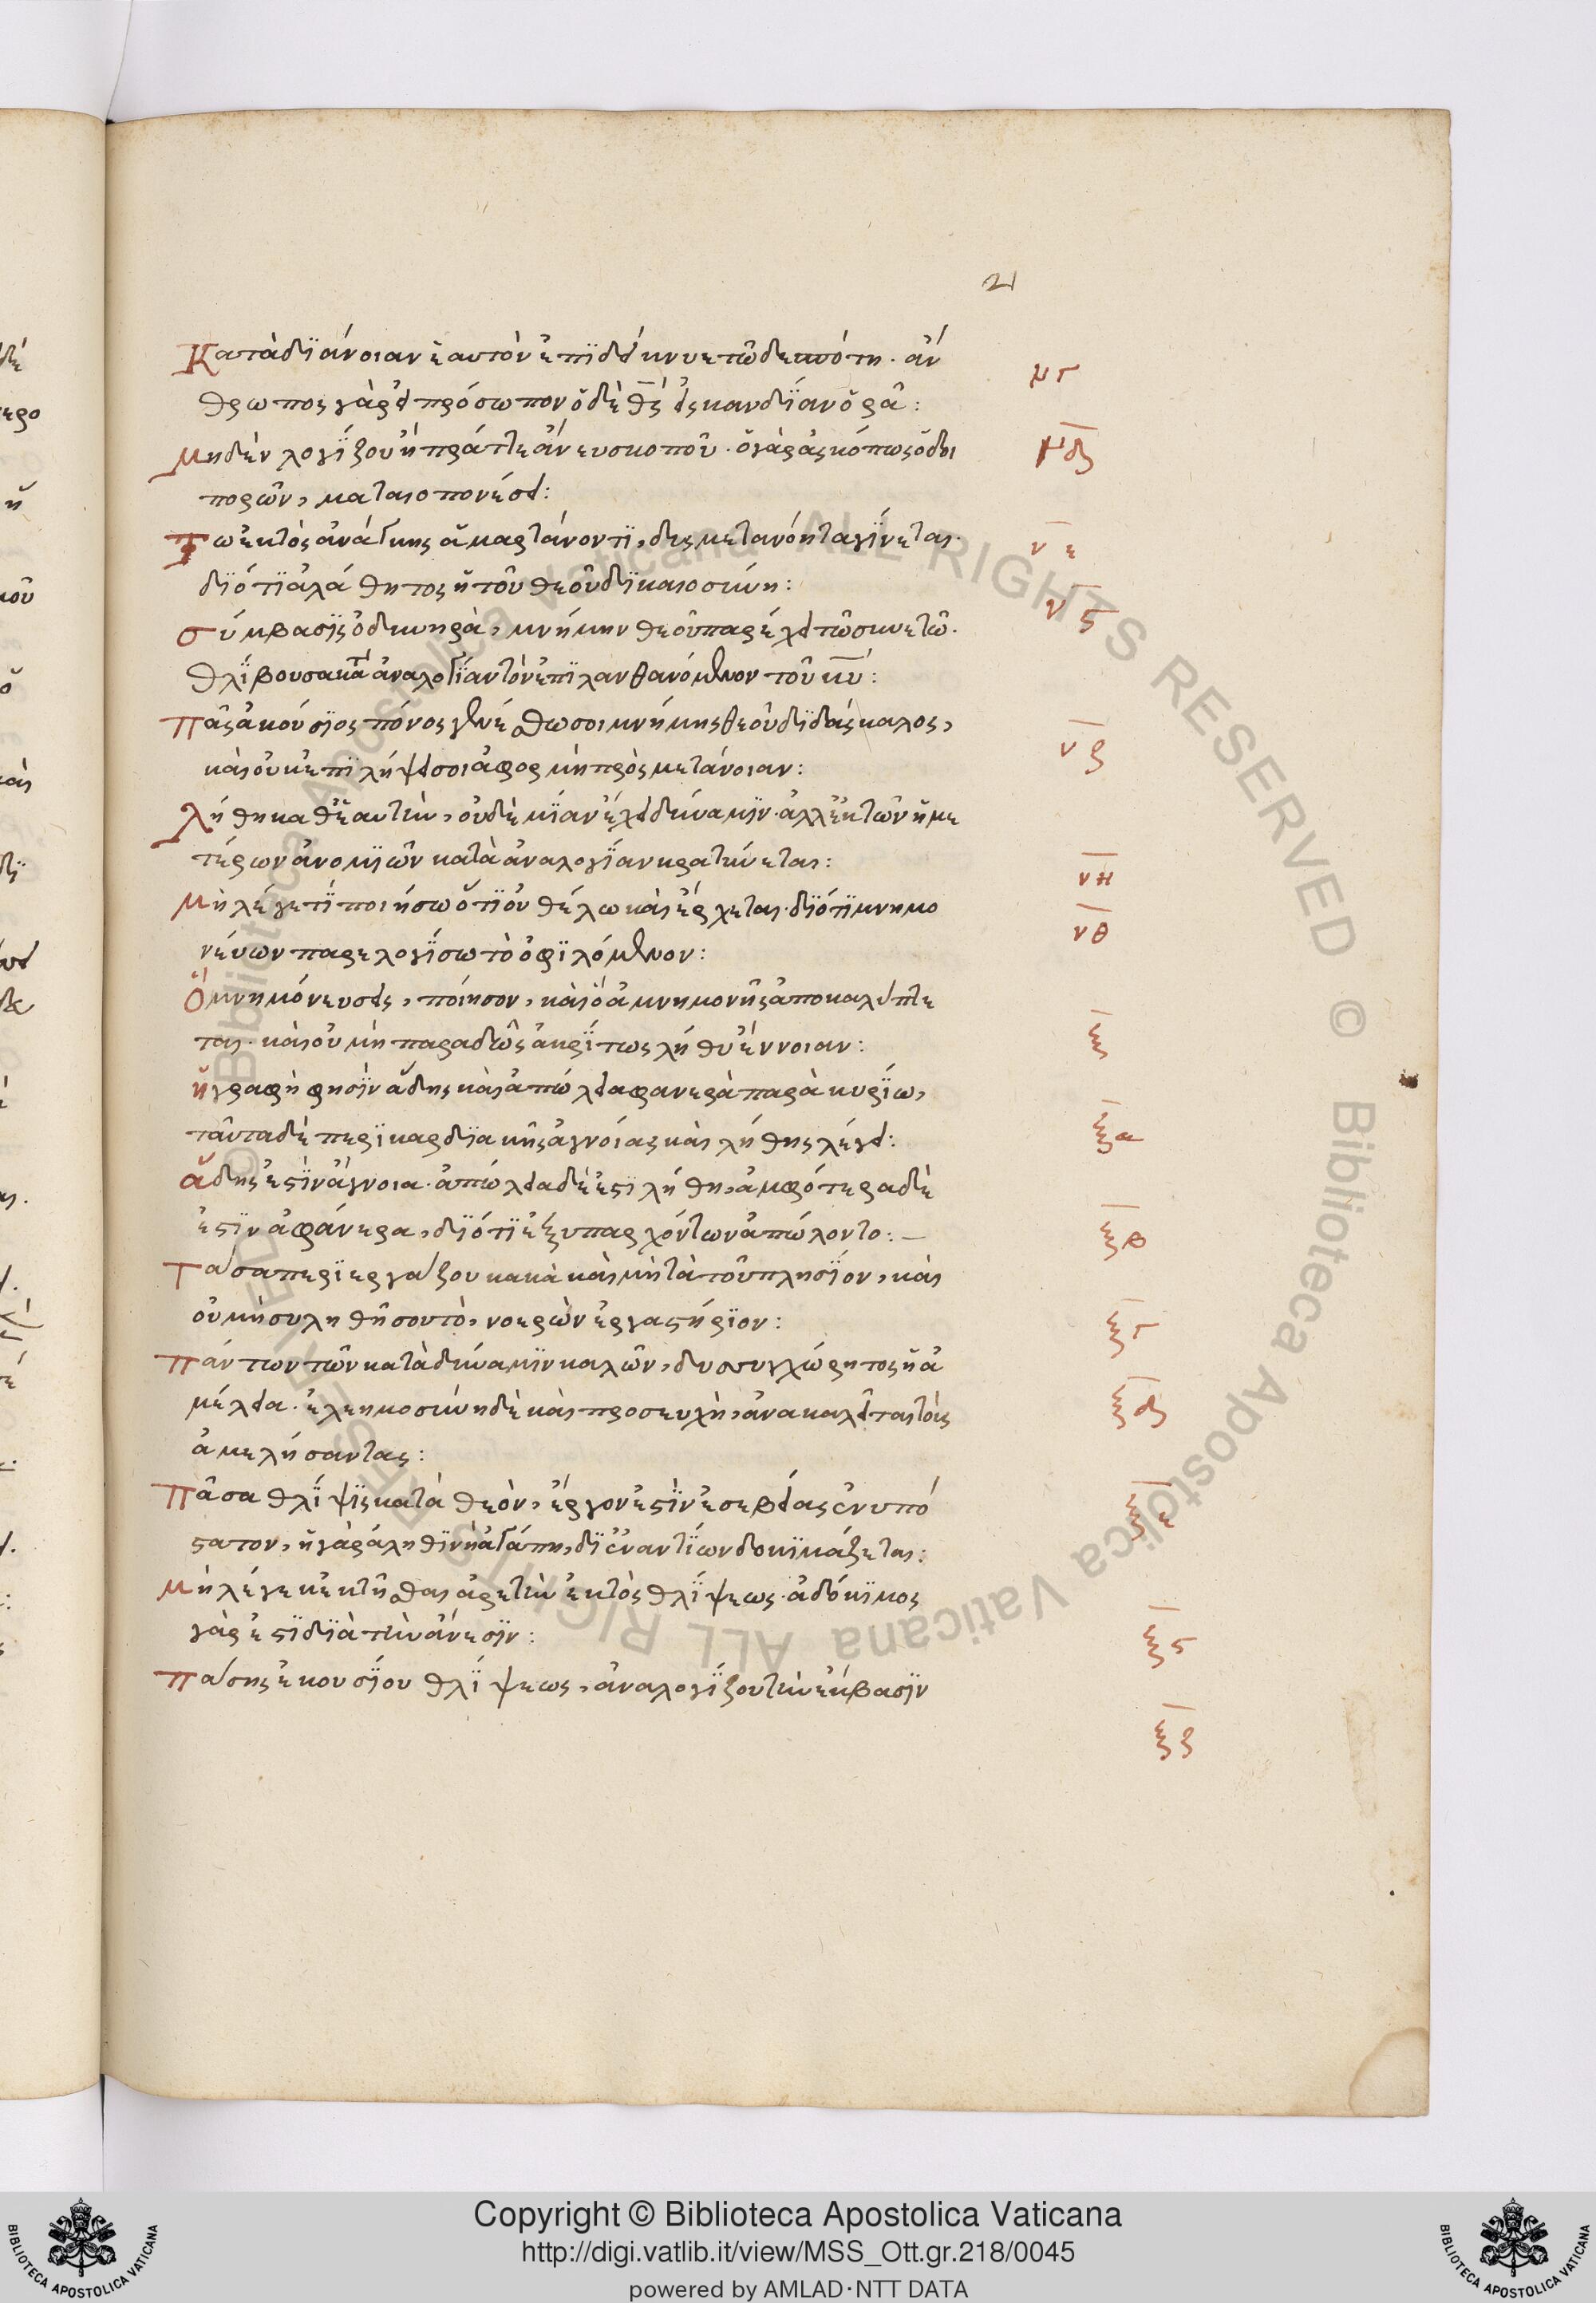 21
Κατὰ δϊάνοιαν ἑαυτὸν ἐπϊδείκνυε τῶ δεσπότη. ἄν
θρωπος γὰρ εἰ πρόσωπον ὁ δὲ θς εἰς καρδΐαν ὁρᾶ:
μγ
Μηδὲν λογΐζου ἢ πράττε ἄνευ σκοποῦ. ὁ γὰρ ἀσκόπως ὁδοι
πορῶν, ματαιοπονήσει:
μδ
Τῶ ἐκτὸς ἀνάγκης ἁμαρτάνοντϊ, δυς μετανόητα γΐνεται.
δϊότϊ ἀλάθητος ἡ τοῦ θεοῦ δϊκαιοσύνη:
νε
σύμβασϊς ὀδυνηρὰ, μνήμην θεοῦ παρέχει τῶ συνετῶ.
θλΐβουσα κατὰ ἀναλογΐαν τὸν ἐπϊλανθανόμενον τοῦ κυ:
νς
Πᾶς ἀκούσϊος πόνος γενέσθω σοι μνήμης θεοῦ δϊδάσκαλος,
καὶ οὐκ ἐπϊλήψει σοι ἀφορμὴ πρὸς μετάνοιαν:
νζ
Λήθη καθ ἑαυτὴν, οὐδὲ μΐαν ἔχει δύναμϊν. ἀλλ ἐκ τῶν ἡμε
τέρων ἀνομϊῶν κατὰ ἀναλογΐαν κρατύνεται:
νη
Μὴ λέγε τΐ ποιήσω ὅτϊ οὐ θέλω καὶ ἔρχεται. δϊότϊ μνημο
νέυων παρελογΐσω τὸ ὀφϊλόμενον:
νθ
Ὃ μνημόνευσεις, ποίησον, καὶ ὃ ἀμνημονῆς ἀποκαλείπτε
ται. καὶ οὐ μὴ παραδῶς ἀκρΐτως λήθυ ἔννοιαν:
ξ
ἡ γραφὴ φησϊν ἅδης καὶ ἀπώλεια φανερὰ παρὰ κυρΐω,
ταῦτα δὲ περϊ καρδϊακῆς ἀγνοίας καὶ λήθης λέγει:
ξα
ἅδης ἐστϊν ἄγνοια. ἀπώλεια δὲ ἐστϊ λήθη, ἀμφότερα δὲ
ἐστϊν ἀφάνερα, δϊότϊ ἐξ υπαρχόντων ἀπώλοντο:—
ξβ
Τὰ σὰ περϊεργάζου κακὰ καὶ μὴ τὰ τοῦ πλησΐον, καὶ
οὐ μὴ συληθῆ σου τὸ, νοερὼν ἐργαστήρϊον:
ξγ
Πάντων τῶν κατὰ δύναμϊν καλῶν, δυσσυγχώρητος ἡ ἀ
μέλεια. ἐλεημοσύνη δὲ καὶ προσευχὴ, ἀνακαλεῖται τοὺς
ἀμελήσαντας:
ξδ
Πᾶσα θλΐψϊς κατὰ θεὸν, ἔργον ἐστϊν ἐσεβείας ἐνυπό
στατον, ἡ γὰρ ἀληθϊνὴ ἀγάπη, δϊ ἐναντΐων δοκϊμάζεται:
ξε
Μὴ λέγε κεκτῆσθαι ἀρετὴν ἐκτὸς θλΐψεως. ἀδόκϊμος
γὰρ ἐστϊ δϊὰ τὴν ἄνεσϊν:
ξς
Πάσης ἐκουσΐου θλΐψεως, ἀναλογΐζου τὴν ἔκβασϊν
ξζ
Copyright © Biblioteca Apostolica Vaticana
http://digi.vatlib.it/view/MSS_Ott.gr.218/0045
powered by AMLAD·NTT DATA
BIBLIOTECA APOSTOLICA VATICANA
BIBLIOTECA APOSTOLICA VATICANA
© Biblioteca Apostolica Vaticana ALL RIGHTS RESERVED © Biblioteca Apostolica Vaticana ALL RIGHTS RESERVED